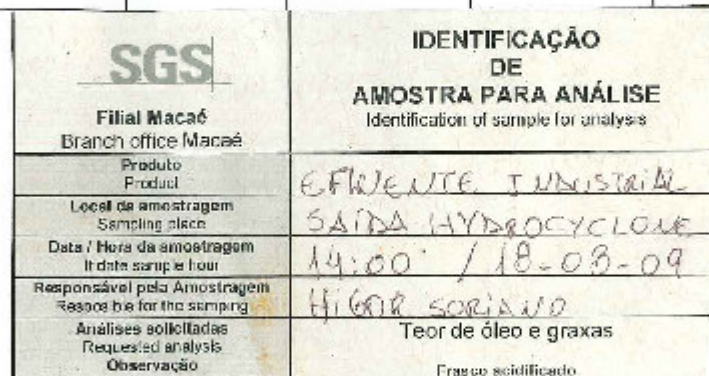 SGS
Filial Macaé
Branch office Macaé
IDENTIFICAÇÃO
DE
AMOSTRA PARA ANÁLISE
Identification of sample for analysis
Produto
Product
EFLUENTE INDUSTRIAL
Local da amostragem
Sampling place
SAÍDA HYDROCYCLONE
Data / Hora da amostragem
It date sample hour
14:00 / 18-03-09
Responsável pela Amostragem
Resposible for the samping
HIGOR SORIANO
Análises solicitadas
Requested analysis
Teor de óleo e graxas
Observação
Frasco acidificado